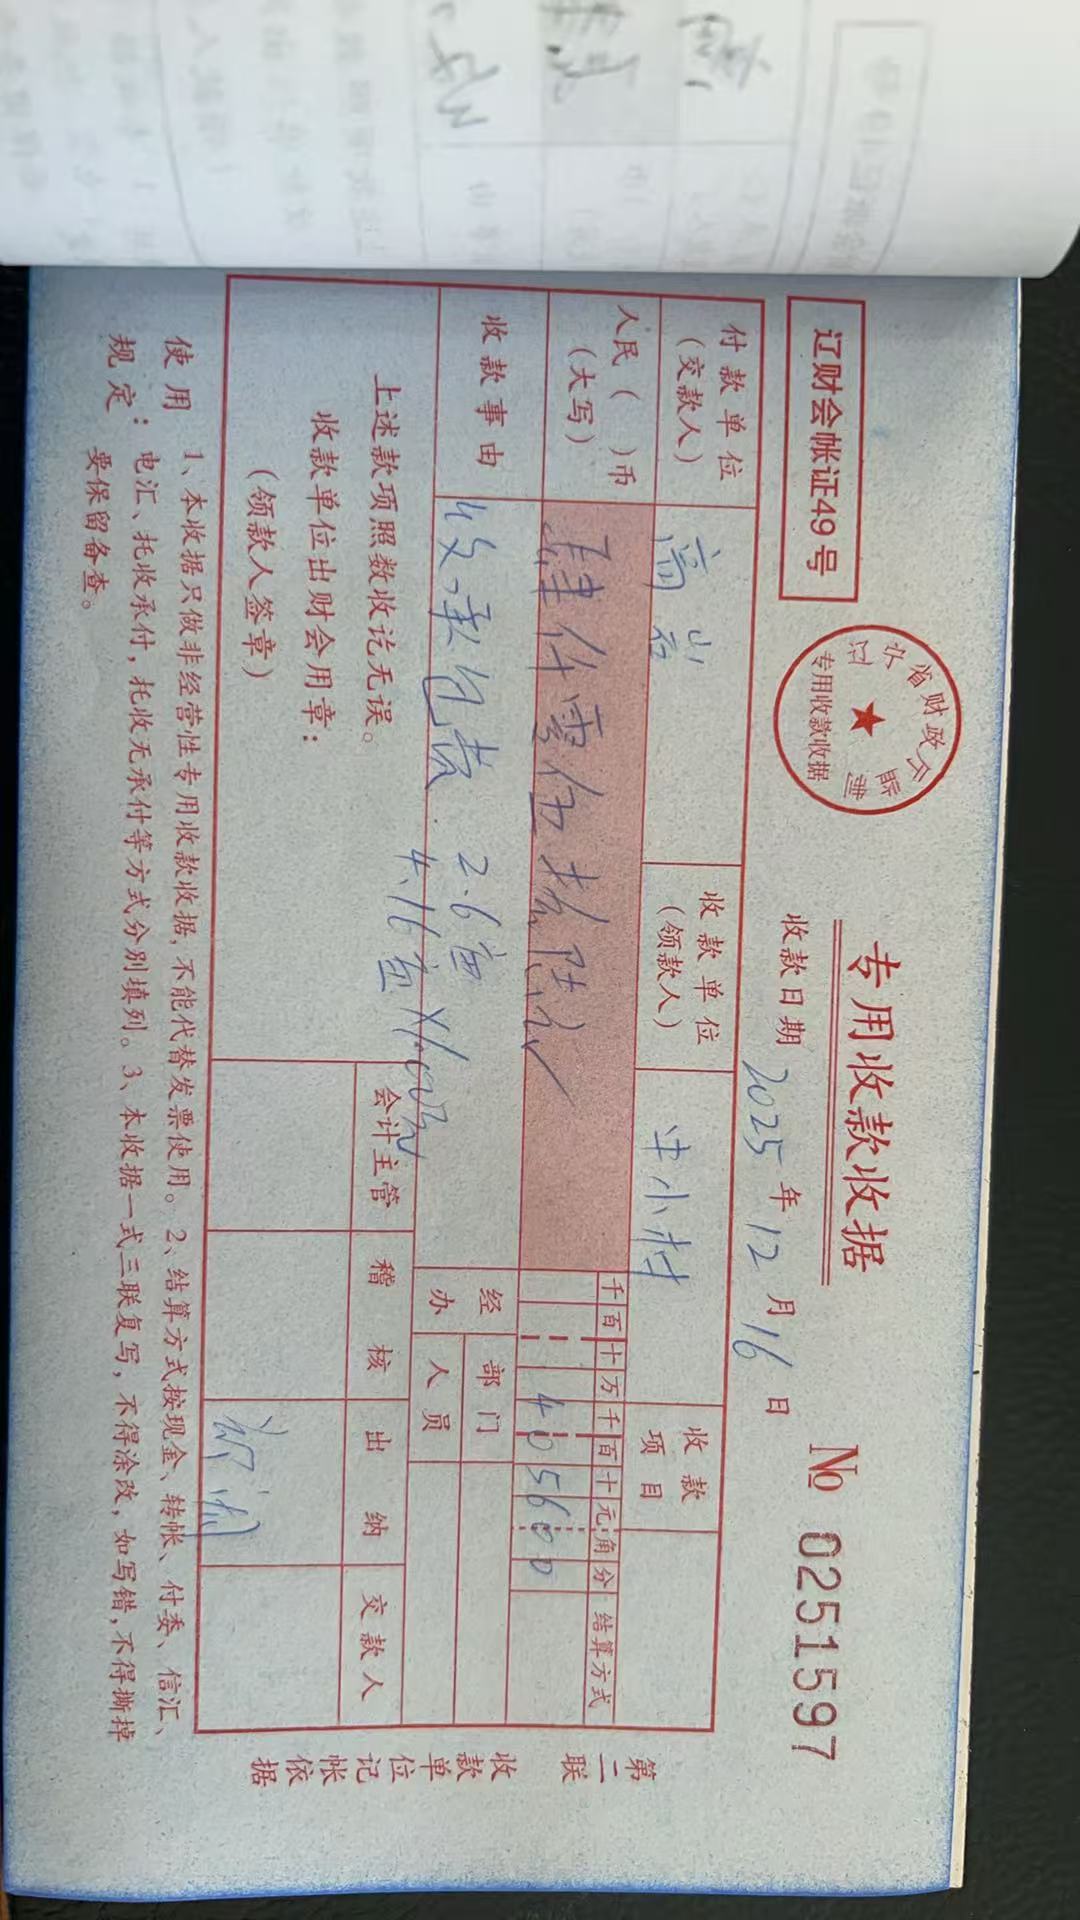 辽财会帐证49号
辽宁省财政厅监制
专用收款收据
专用收款收据
№ 0251597
收款日期 2025 年 12 月 16 日
付款单位(交款人)
收款单位(领款人)
中小村
收款项目
人民( )币(大写)
肆仟零伍拾陆元
千百十万千百十元角分
405600
结算方式
收款事由
收承包费 2.6亩
4.16亩
经办
部门
人员
上述款项照数收讫无误。
收款单位出财会用章:
(领款人签章)
会计主管
稽核
出纳
交款人
使用规定:
1、本收据只做非经营性专用收款收据,不能代替发票使用。2、结算方式按现金、转帐、付委、信汇、
电汇、托收承付,托收无承付等方式分别填列。3、本收据一式三联复写,不得涂改,如写错,不得撕掉
要保留备查。
第二联 收款单位记帐依据